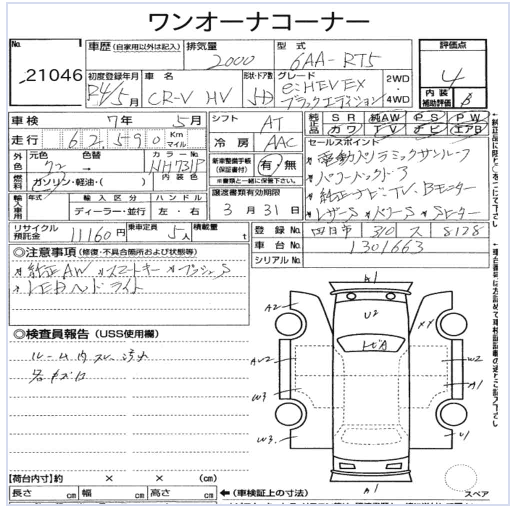 ワンオーナコーナー
No. 21046
車歴 (自家用以外は記入)
排気量 2000
型式 6AA-RT5
評価点 4
内装補助評価 B
初度登録年月 R4/5月
車名 CR-V HV
形状・ドア数 5D
グレード e:HEV EX ブラックエディション
2WD ・ 4WD
車検 7年 5月
走行 62,590 Km マイル
シフト AT
冷房 AAC
純正品 SR 純AW PS PW
カワ TV ナビ エアB
外色 元色 色替 →
カラーNo. NH731P
内装色
燃料 ガソリン・軽油・( )
新車整備手帳(保証書付) 有/無
※書類と一緒に保管下さい。
セールスポイント
電動パノラミックサンルーフ
パワーバックドア
純正ナビ・TV、Bモニター
レザーS パワーS Sヒーター
輸入車用 年式 輸入区分 ディーラー・並行 ハンドル 左・右
譲渡書類有効期限 3月31日
リサイクル預託金 11160円
乗車定員 5人
積載量 t
登録No. 四日市 310 ス 8128
車台No. 1301663
シリアルNo.
◎注意事項 (修復・不具合箇所および状態等)
純正AW スマートキー プッシュS
LEDヘッドライト
◎検査員報告 (USS使用欄)
ルーム内スレ 汚れ
A1
A2
U2
XY
ヒビA
AU2
W2
W3
A1
W3
U1
A1
【荷台内寸】約 × × (cm)
長さ cm 幅 cm 高さ cm
←(車検証上の寸法)
スペア